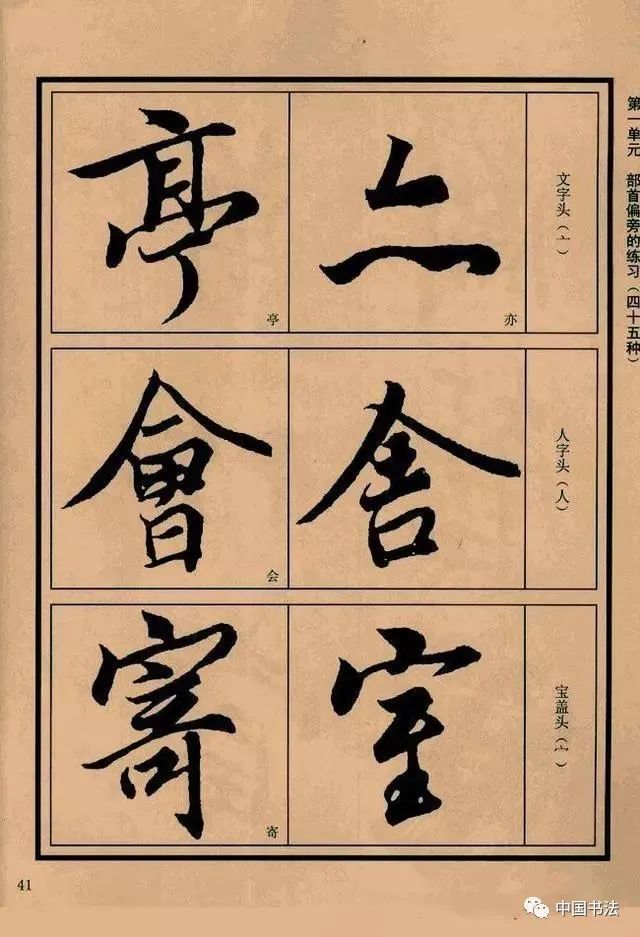 第一单元 部首偏旁的练习（四十五种）
文字头（亠）
亦
亦
亭
亭
人字头（人）
舍
會
会
宝盖头（宀）
室
寄
寄
41
中国书法